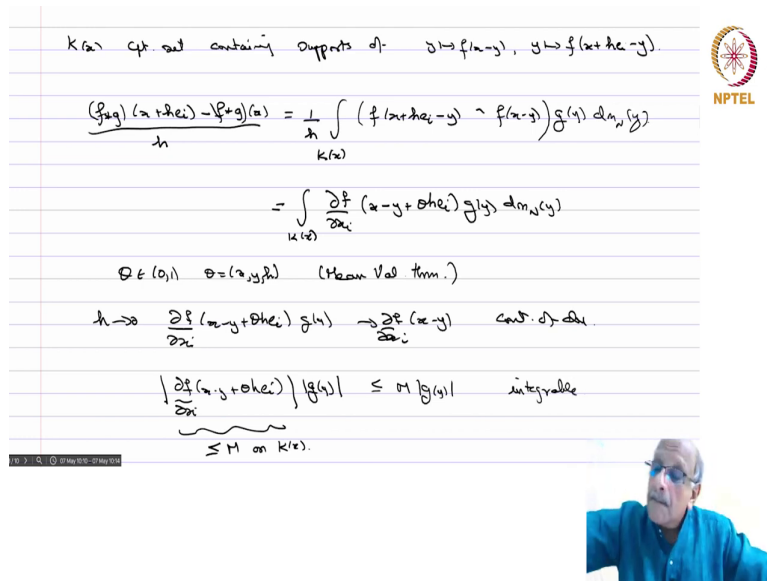 K(x) cpt. set containing supports of y↦f(x-y), y↦f(x+hei-y).
NPTEL
(f*g)(x+hei) - (f*g)(x) / h = 1/h ∫_{K(x)} (f(x+hei-y) - f(x-y)) g(y) dm_N(y)
= ∫_{K(x)} ∂f/∂xi (x-y+θhei) g(y) dm_N(y)
θ ∈ (0,1) θ=(x,y,h) (Mean Val thm.)
h→0 ∂f/∂xi (x-y+θhei) g(y) → ∂f/∂xi (x-y) cont. of der.
|∂f/∂xi (x-y+θhei)| |g(y)| ≤ M |g(y)| integrable
≤ M on K(x).
/10 07 May 10:10 - 07 May 10:14